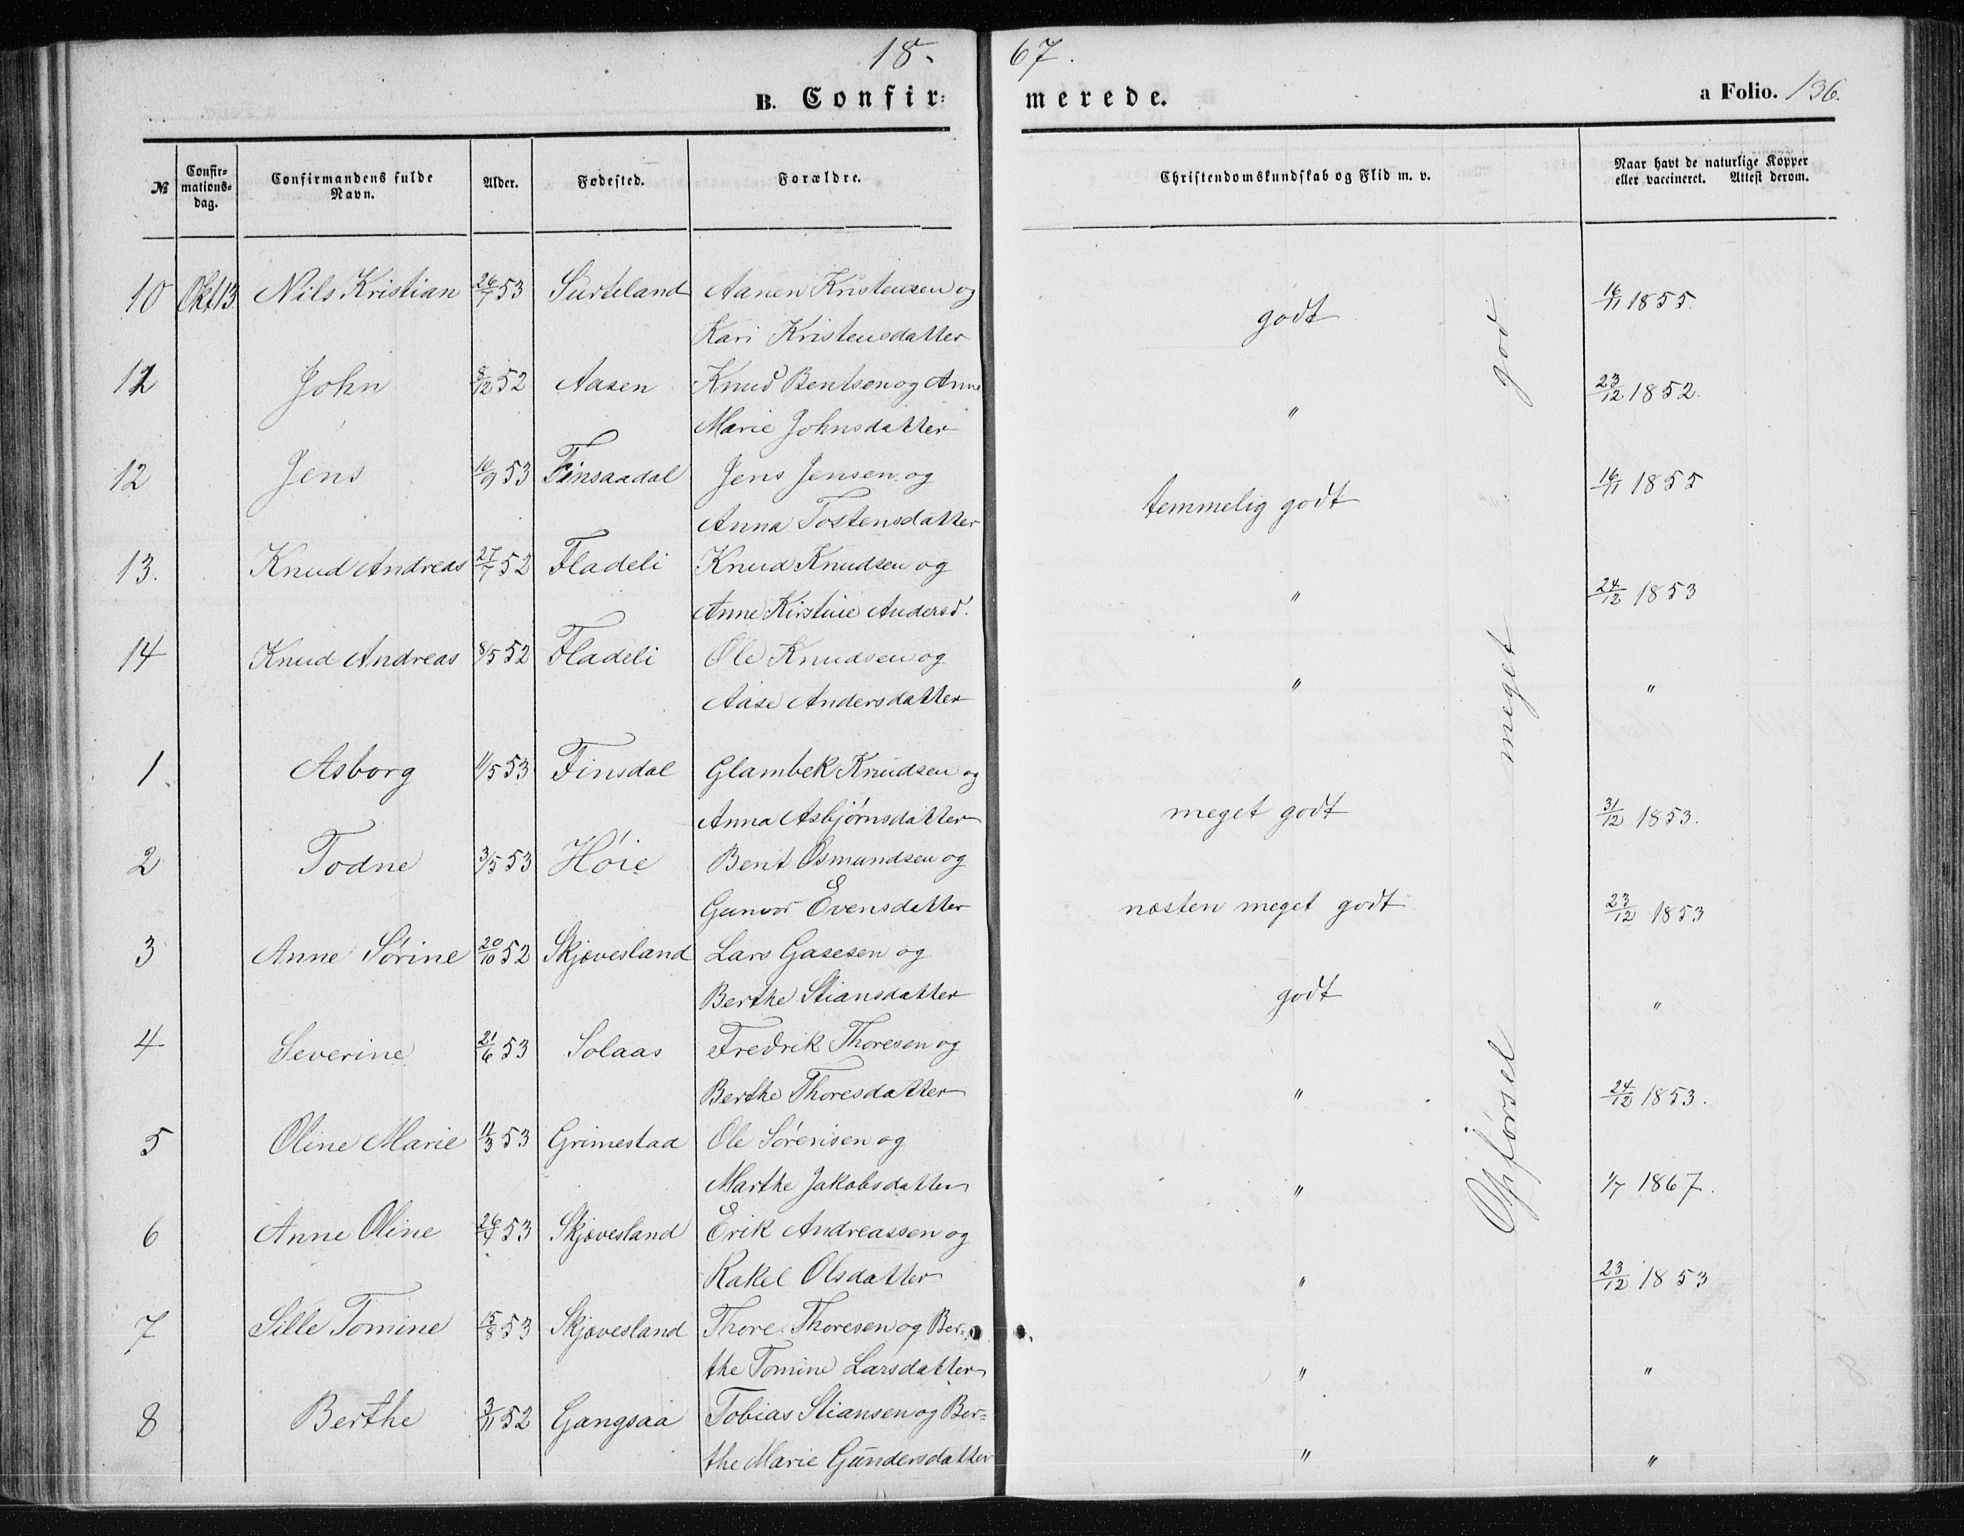 18. 67.
B. Confir: merede. a Folio. 136.
№ Confir-mations-dag. Confirmandens fulde Navn. Alder. Fødested. Forældre. Christendomskundskab og Flid m. v. Naar havt de naturlige Kopper eller vaccineret. Attest derom.
10 Okt 13 Nils Kristian 26/7 53 Surteland Aanen Kristensen og godt 16/11 1855.
Kari Kristensdatter
12 John 8/12 52 Aasen Knud Bentsen og Anne " 23/12 1852.
Marie Johnsdatter
12 Jens 16/9 53 Finsaadal Jens Jensen og temmelig godt 16/11 1855
Anna Tostensdatter
13. Knud Andreas 27/7 52 Fladeli Knud Knudsen og " 24/12 1853
Anne Kirstine Andersd.
14 Knud Andreas 8/5 52 Fladeli Ole Knudsen og " "
Aase Andersdatter
1. Asborg 11/5 53 Finsdal Glambek Knudsen og meget godt 31/12 1853.
Anna Asbjørnsdatter
2 Todne 3/5 53 Høie Berit Osmundsen og næsten meget godt 23/12 1853
Gunvor Evensdatter
3 Anne Sørine 20/10 52 Skjævesland Lars Gasesen og godt "
Berthe Stiansdatter
4 Severine 21/6 53 Solaas Fredrik Thoresen og " 24/12 1853.
Berthe Thoresdatter
5 Oline Marie 11/3 53 Grimestad Ole Sørensen og " 1/7 1867.
Marthe Jakobsdatter
6 Anne Oline 53 Skjævesland Erik Andreassen og " 23/12 1853
Rakel Olsdatter
7 Sille Tomine 15/8 53 Skjævesland Thore Thoresen og Ber- " "
the Tomine Larsdatter
8 Berthe 3/11 52 Gangsaa Tobias Stiansen og Ber= " "
the Marie Gundersdatter
Opførsel meget god